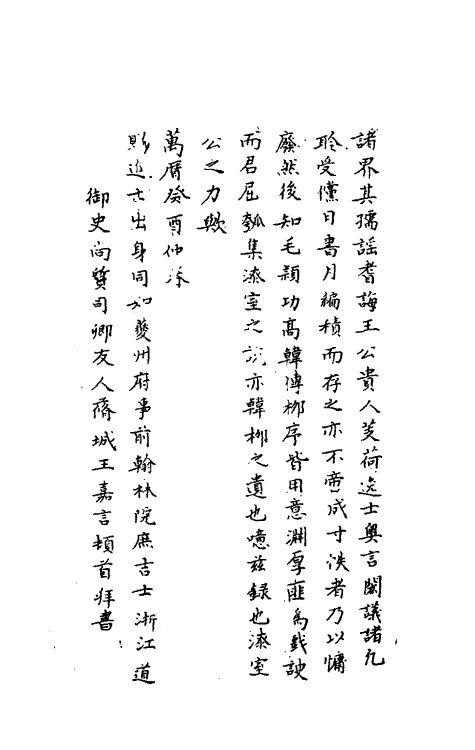 諸界其孺謡耆誨王公貴人芰荷逸士奥言閎議諸凡
聆受儻日書月編積而存之亦不啻成寸泆者乃以慵
廢然後知毛穎功高韓傳柳序皆用意淵厚匪為戱諛
而君屈瓠集漆室之說亦韓柳之遺也噫茲録也漆室
公之力歟
萬曆癸酉仲
賜進士出身同知夔州府事前翰林院庶吉士浙江道
御史尚寳司卿友人蓨城王嘉言頓首拜書